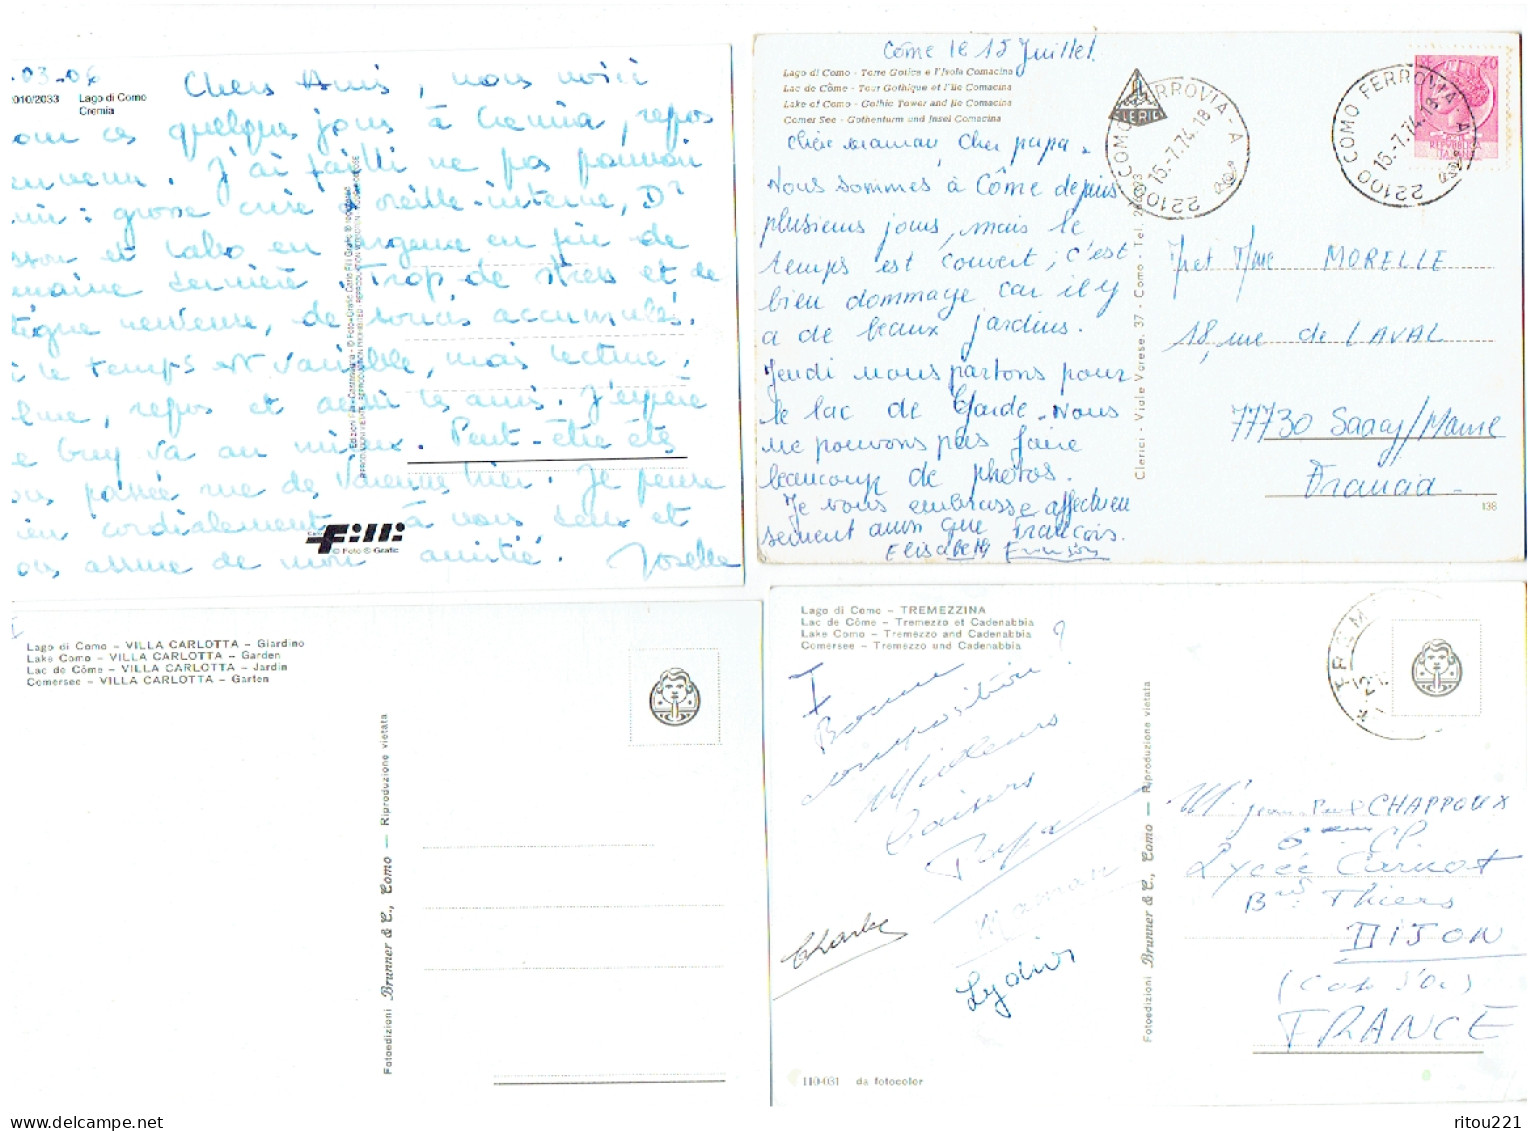 .03-06
2010/2033 Lago di Como
Cremia
Chers Amis, nous voici
pour ces quelques jours à Cremia, repos
bienvenu. J'ai failli ne pas pouvoir
: grosse crise d'oreille interne, Dr
et labo en urgence en fin de
semaine dernière. Trop de stress et de
fatigue nerveuse, de soucis accumulés.
le temps est variable, mais lecture,
calme, repos et avoir les amis. J'espère
que Guy va au mieux. Peut-être êtes
vous passée rue de Varenne hier. Je pense
bien cordialement à vous deux et
vous assure de mon amitié. Joselle
Edizioni Fili
REPRODUZIONE VIETATA - REPRODUCTION PROHIBITED - REPRODUCTION INTERDITE
Filli
© Foto ® Grafic
Côme le 15 Juillet.
Lago di Como - Torre Gotica e l'Isola Comacina
Lac de Côme - Tour Gothique et l'Ile Comacina
Lake of Como - Gothic Tower and Ile Comacina
Comer See - Gothenturm und Insel Comacina
CLERICI
22100 COMO FERROVIA - A
15.-7.74.18
22100 COMO FERROVIA - A
15.-7.74.18
40
REPUBBLICA
ITALIANA
Chère maman, Cher papa.
Nous sommes à Côme depuis
plusieurs jours, mais le
temps est couvert ; c'est
bien dommage car il y
a de beaux jardins.
Jeudi nous partons pour
le lac de Garde. Nous
ne pouvons pas faire
beaucoup de photos.
Je vous embrasse affectueu
sement ainsi que François.
Elisabeth
Clerici - Viale Varese, 37 - Como - Tel.
Mr et Mme MORELLE
18, rue de LAVAL
77730 Saacy/Marne
Francia
136
I
Lago di Como - VILLA CARLOTTA - Giardino
Lake Como - VILLA CARLOTTA - Garden
Lac de Côme - VILLA CARLOTTA - Jardin
Comersee - VILLA CARLOTTA - Garten
Fotoedizioni Brunner & C., Como - Riproduzione vietata
Lago di Como - TREMEZZINA
Lac de Côme - Tremezzo et Cadenabbia
Lake Como - Tremezzo and Cadenabbia
Comersee - Tremezzo und Cadenabbia
I
Bonne
composition ?
Meilleurs
baisers
Papa
Maman
Charles
Lydie
Fotoedizioni Brunner & C., Como - Riproduzione vietata
Mr Jean Paul CHAPPOUX
6eme CP
Lycée Carnot
Bd Thiers
DIJON
(Côte d'Or)
FRANCE
110-031 da fotocolor
ritou221